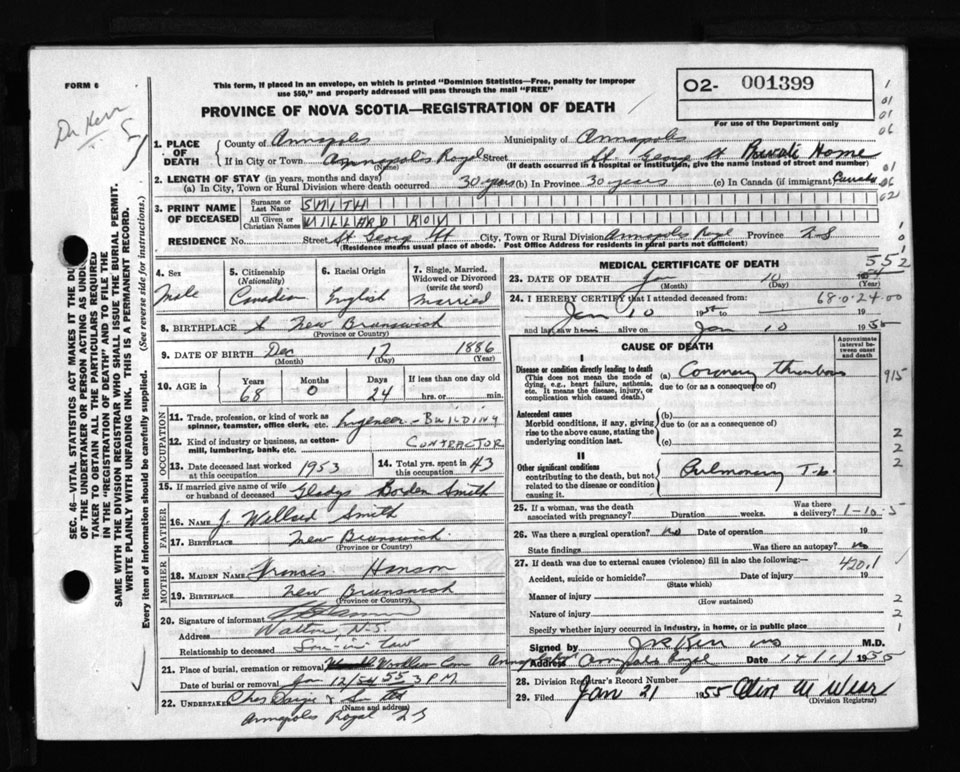 FORM 6
This form, if placed in an envelope, on which is printed "Dominion Statistics—Free, penalty for improper
use $50," and properly addressed will pass through the mail "FREE"
02- 001399
For use of the Department only
PROVINCE OF NOVA SCOTIA—REGISTRATION OF DEATH
Dr Kerr
1. PLACE OF DEATH
County of Annapolis Municipality of Annapolis
If in City or Town Annapolis Royal Street St. George St Private Home
(Name) (If death occurred in a hospital or institution, give the name instead of street and number)
2. LENGTH OF STAY (in years, months and days)
(a) In City, Town or Rural Division where death occurred 30 years (b) In Province 30 years (c) In Canada (if immigrant) Canada
3. PRINT NAME OF DECEASED
Surname or Last Name SMITH
All Given or Christian Names WILLARD ROY
RESIDENCE No. Street St George St City, Town or Rural Division Annapolis Royal Province N S
(Residence means usual place of abode. Post Office Address for residents in rural parts not sufficient)
4. Sex Male
5. Citizenship (Nationality) Canadian
6. Racial Origin English
7. Single, Married, Widowed or Divorced (write the word) Married
8. BIRTHPLACE New Brunswick
(Province or Country)
9. DATE OF BIRTH Dec 17 1886
(Month) (Day) (Year)
10. AGE in Years 68 Months 0 Days 24 If less than one day old
hrs. or min.
OCCUPATION
11. Trade, profession, or kind of work as
spinner, teamster, office clerk, etc. Engineer - BUILDING
12. Kind of industry or business, as cotton-
mill, lumbering, bank, etc. CONTRACTOR
13. Date deceased last worked
at this occupation 1953
14. Total yrs. spent in
this occupation 43
15. If married give name of wife
or husband of deceased Gladys Borden Smith
FATHER
16. NAME J. Willard Smith
17. BIRTHPLACE New Brunswick
(Province or Country)
MOTHER
18. MAIDEN NAME Francis Hanson
19. BIRTHPLACE New Brunswick
(Province or Country)
20. Signature of informant
Address Walton, N.S.
Relationship to deceased Son-in-law
21. Place of burial, cremation or removal Woodlawn Cem Annapolis
Date of burial or removal Jan 12/54 55 3 P.M
22. UNDERTAKER Chas & Son Ltd
(Name and address)
Annapolis Royal N S
MEDICAL CERTIFICATE OF DEATH
552
23. DATE OF DEATH Jan 10
(Month) (Day)
24. I HEREBY CERTIFY that I attended deceased from: 68-0-24-00
Jan 10 1955 to 19
and last saw him alive on Jan 10 1955
CAUSE OF DEATH
Approximate interval between onset and death
I
Disease or condition directly leading to death
(This does not mean the mode of
dying, e.g., heart failure, asthenia,
etc. It means the disease, injury, or
complication which caused death.)
(a) Coronary thrombosis
due to (or as a consequence of)
915
Antecedent causes
Morbid conditions, if any, giving
rise to the above cause, stating the
underlying condition last.
(b)
due to (or as a consequence of)
(c)
II
Other significant conditions
contributing to the death, but not
related to the disease or condition
causing it.
Pulmonary T-b.
2
2
2
25. If a woman, was the death
associated with pregnancy? Duration weeks. Was there
a delivery? 1-10-5
26. Was there a surgical operation? No Date of operation 19
State findings Was there an autopsy? No
27. If death was due to external causes (violence) fill in also the following:— 420.1
Accident, suicide or homicide? Date of injury 19
(State which)
Manner of injury 2
(How sustained)
Nature of injury 2
Specify whether injury occurred in industry, in home, or in public place 1
Signed by Kerr M.D.
Address Annapolis Royal Date 1955
28. Division Registrar's Record Number
29. Filed Jan 21 1955 Olive M Wear
(Division Registrar)
SEC. 46—VITAL STATISTICS ACT MAKES IT THE DUTY
OF THE UNDERTAKER OR PERSON ACTING AS UNDER-
TAKER TO OBTAIN ALL THE PARTICULARS REQUIRED
IN THE "REGISTRATION OF DEATH" AND TO FILE THE
SAME WITH THE DIVISION REGISTRAR WHO SHALL ISSUE THE BURIAL PERMIT.
WRITE PLAINLY WITH UNFADING INK. THIS IS A PERMANENT RECORD.
Every item of information should be carefully supplied. (See reverse side for instructions.)